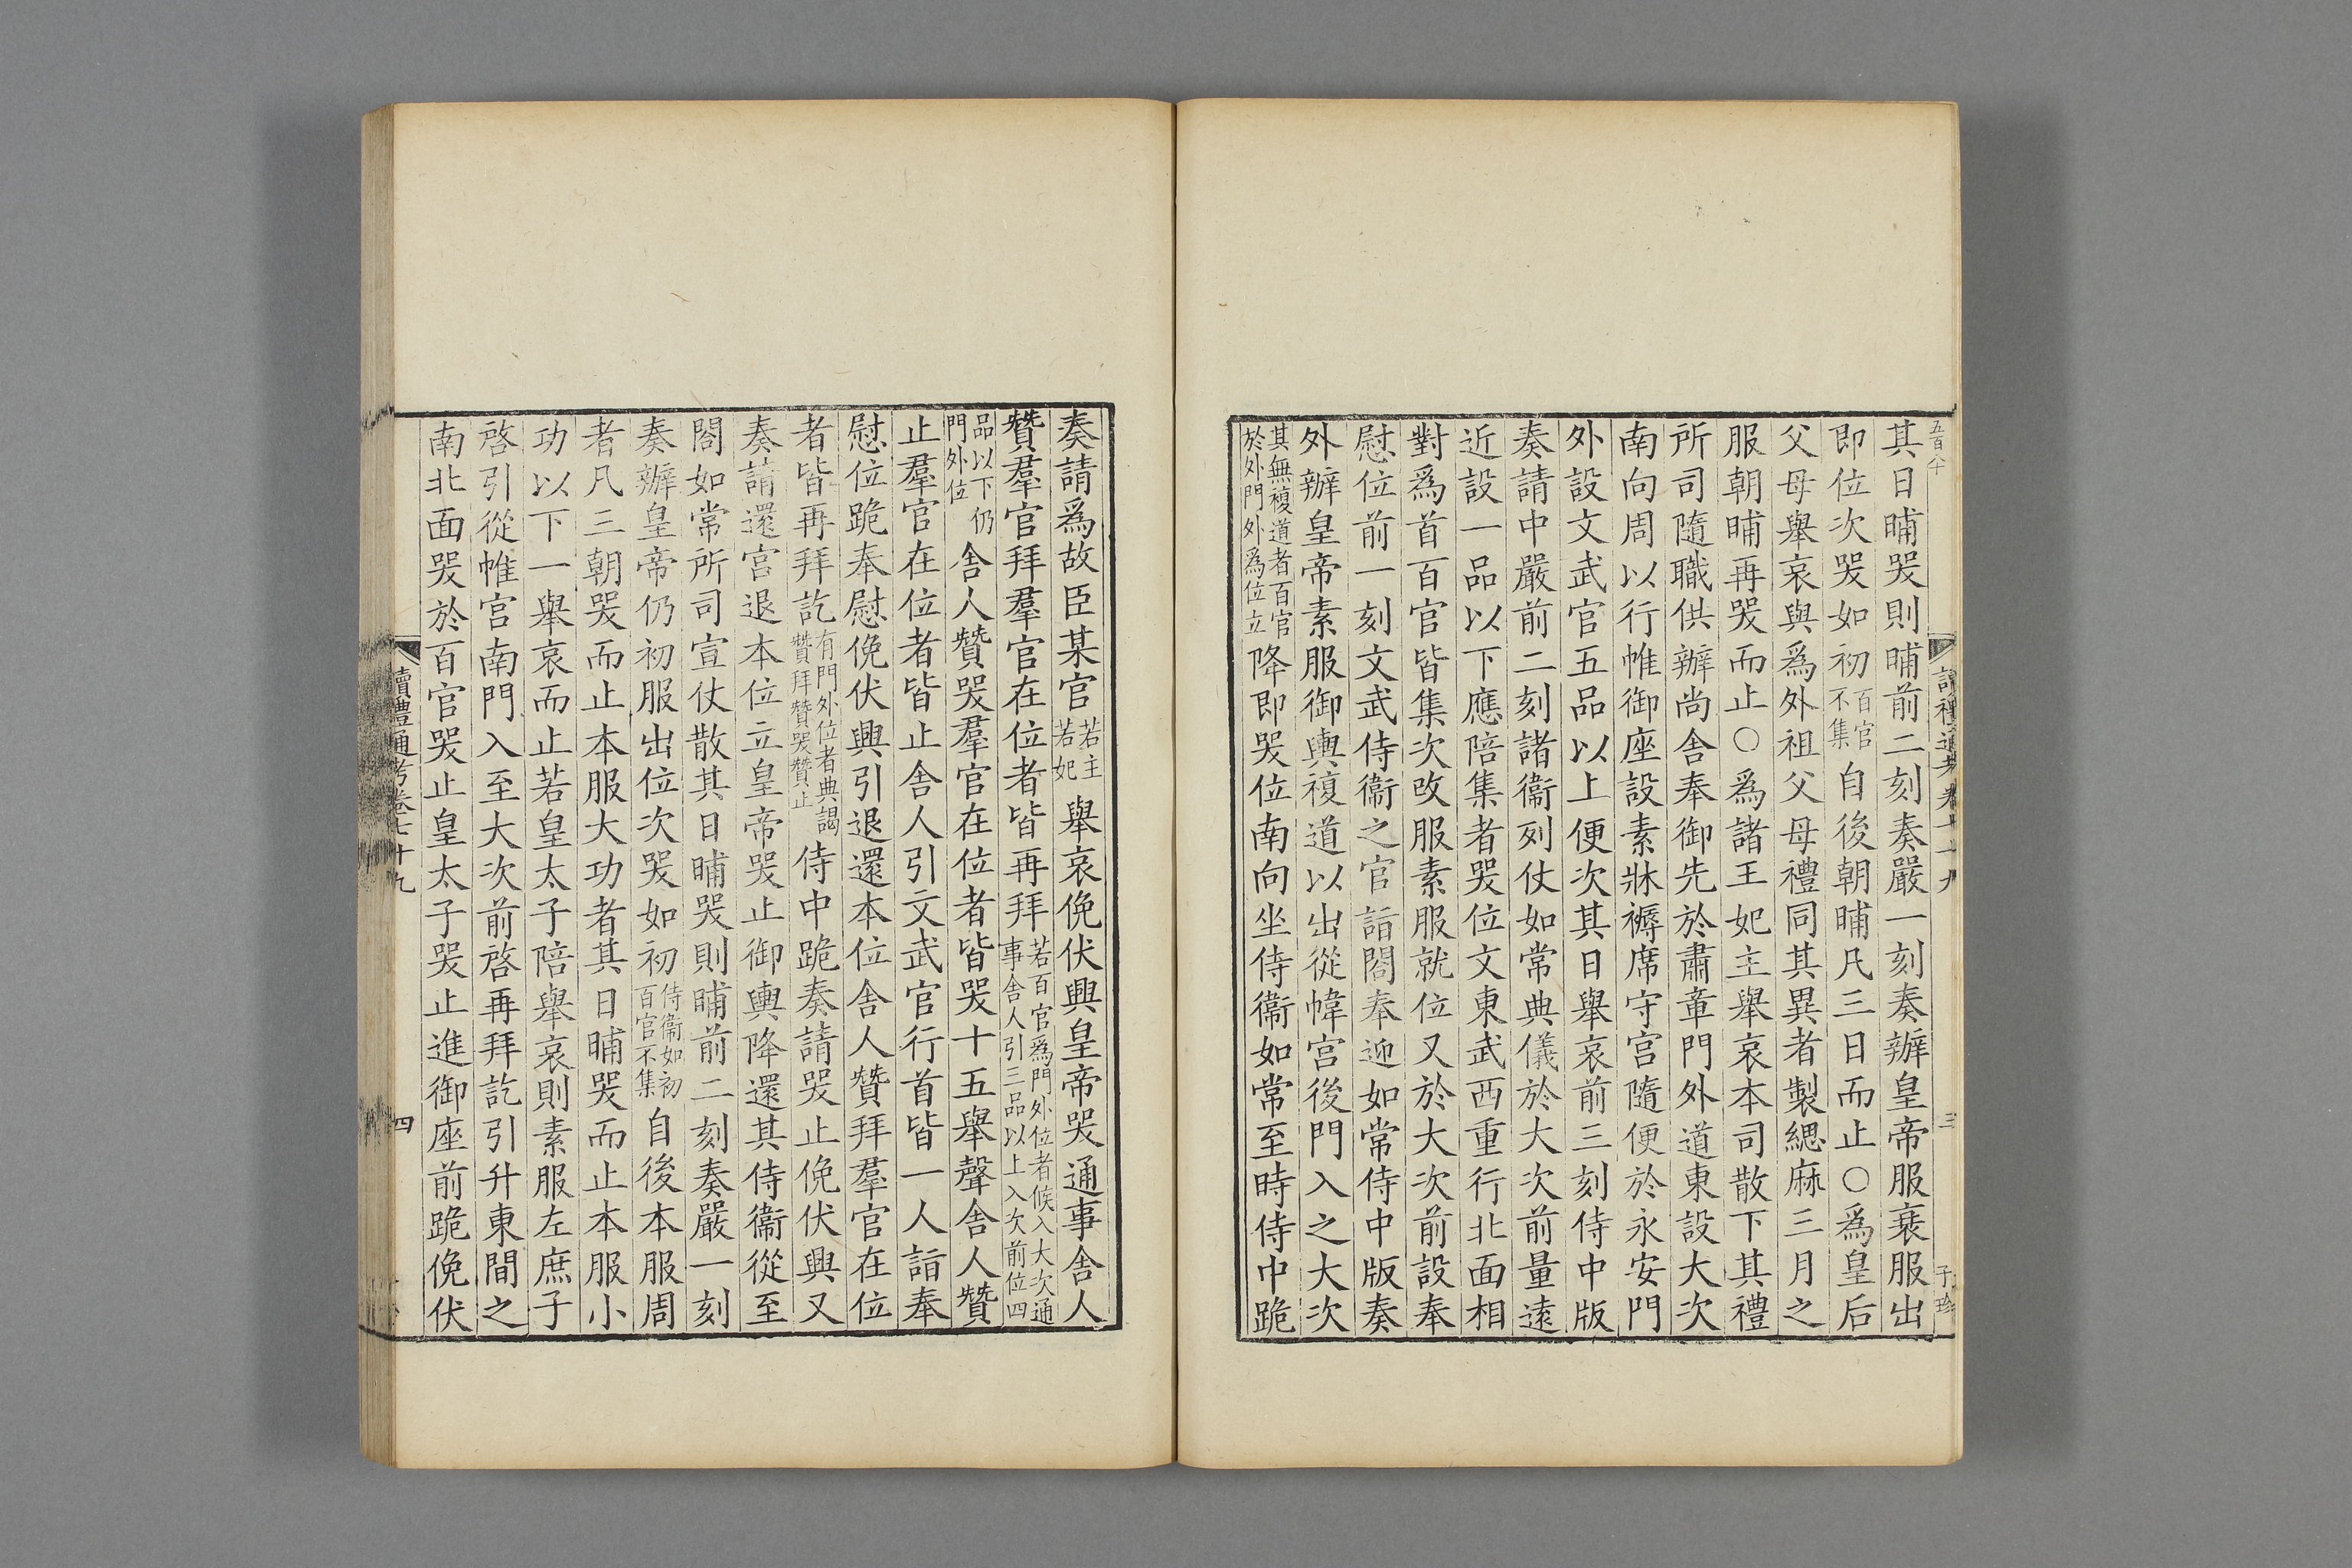 其日晡哭則晡前二刻奏嚴一刻奏辦皇帝服衰服出
即位次哭如初百官不集自後朝晡凡三日而止○爲皇后
父母舉哀與爲外祖父母禮同其異者製緦麻三月之
服朝晡再哭而止○爲諸王妃主舉哀本司散下其禮
所司隨職供辦尚舍奉御先於肅章門外道東設大次
南向周以行帷御座設素牀褥席守宮隨便於永安門
外設文武官五品以上便次其日舉哀前三刻侍中版
奏請中嚴前二刻諸衞列仗如常典儀於大次前量遠
近設一品以下應陪集者哭位文東武西重行北面相
對爲首百官皆集次改服素服就位又於大次前設奉
慰位前一刻文武侍衞之官詣閤奉迎如常侍中版奏
外辦皇帝素服御輿複道以出從幃宮後門入之大次
其無複道者百官於外門外爲位立降即哭位南向坐侍衞如常至時侍中跪
讀禮通考卷七十九
三
奏請爲故臣某官若主若妃舉哀俛伏興皇帝哭通事舍人
贊羣官拜羣官在位者皆再拜若百官爲門外位者候入大次通事舍人引三品以上入次前位四
品以下仍門外位舍人贊哭羣官在位者皆哭十五舉聲舍人贊
止羣官在位者皆止舍人引文武官行首皆一人詣奉
慰位跪奉慰俛伏興引退還本位舍人贊拜羣官在位
者皆再拜訖有門外位者典謁贊拜贊哭贊止侍中跪奏請哭止俛伏興又
奏請還宮退本位立皇帝哭止御輿降還其侍衞從至
閤如常所司宣仗散其日晡哭則晡前二刻奏嚴一刻
奏辦皇帝仍初服出位次哭如初侍衞如初百官不集自後本服周
者凡三朝哭而止本服大功者其日晡哭而止本服小
功以下一舉哀而止若皇太子陪舉哀則素服左庶子
啓引從帷宮南門入至大次前啓再拜訖引升東間之
南北面哭於百官哭止皇太子哭止進御座前跪俛伏
讀禮通考卷七十九
四